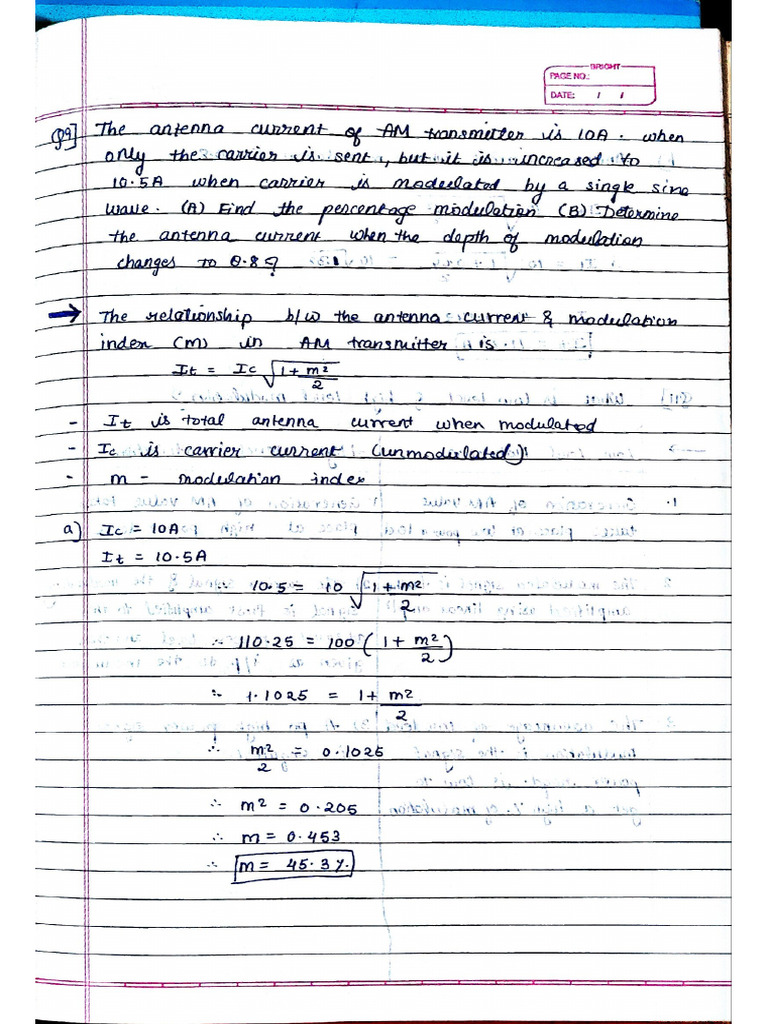 BRIGHT
PAGE NO.:
DATE: / /
Q9] The antenna current of AM transmitter is 10A. when
only the carrier is sent, but it is increased to
10.5A when carrier is modulated by a single sine
wave. (A) Find the percentage modulation (B) Determine
the antenna current when the depth of modulation
changes to 0.8?
→ The relationship b/w the antenna current & modulation
index (m) in AM transmitter is.
It = Ic √(1 + m²/2)
- It is total antenna current when modulated
- Ic is carrier current (unmodulated)
- m - modulation index
a) Ic = 10A
It = 10.5A
∴ 10.5 = 10 √(1 + m²/2)
∴ 110.25 = 100 (1 + m²/2)
∴ 1.1025 = 1 + m²/2
∴ m²/2 = 0.1025
∴ m² = 0.205
∴ m = 0.453
∴ m = 45.3 %.